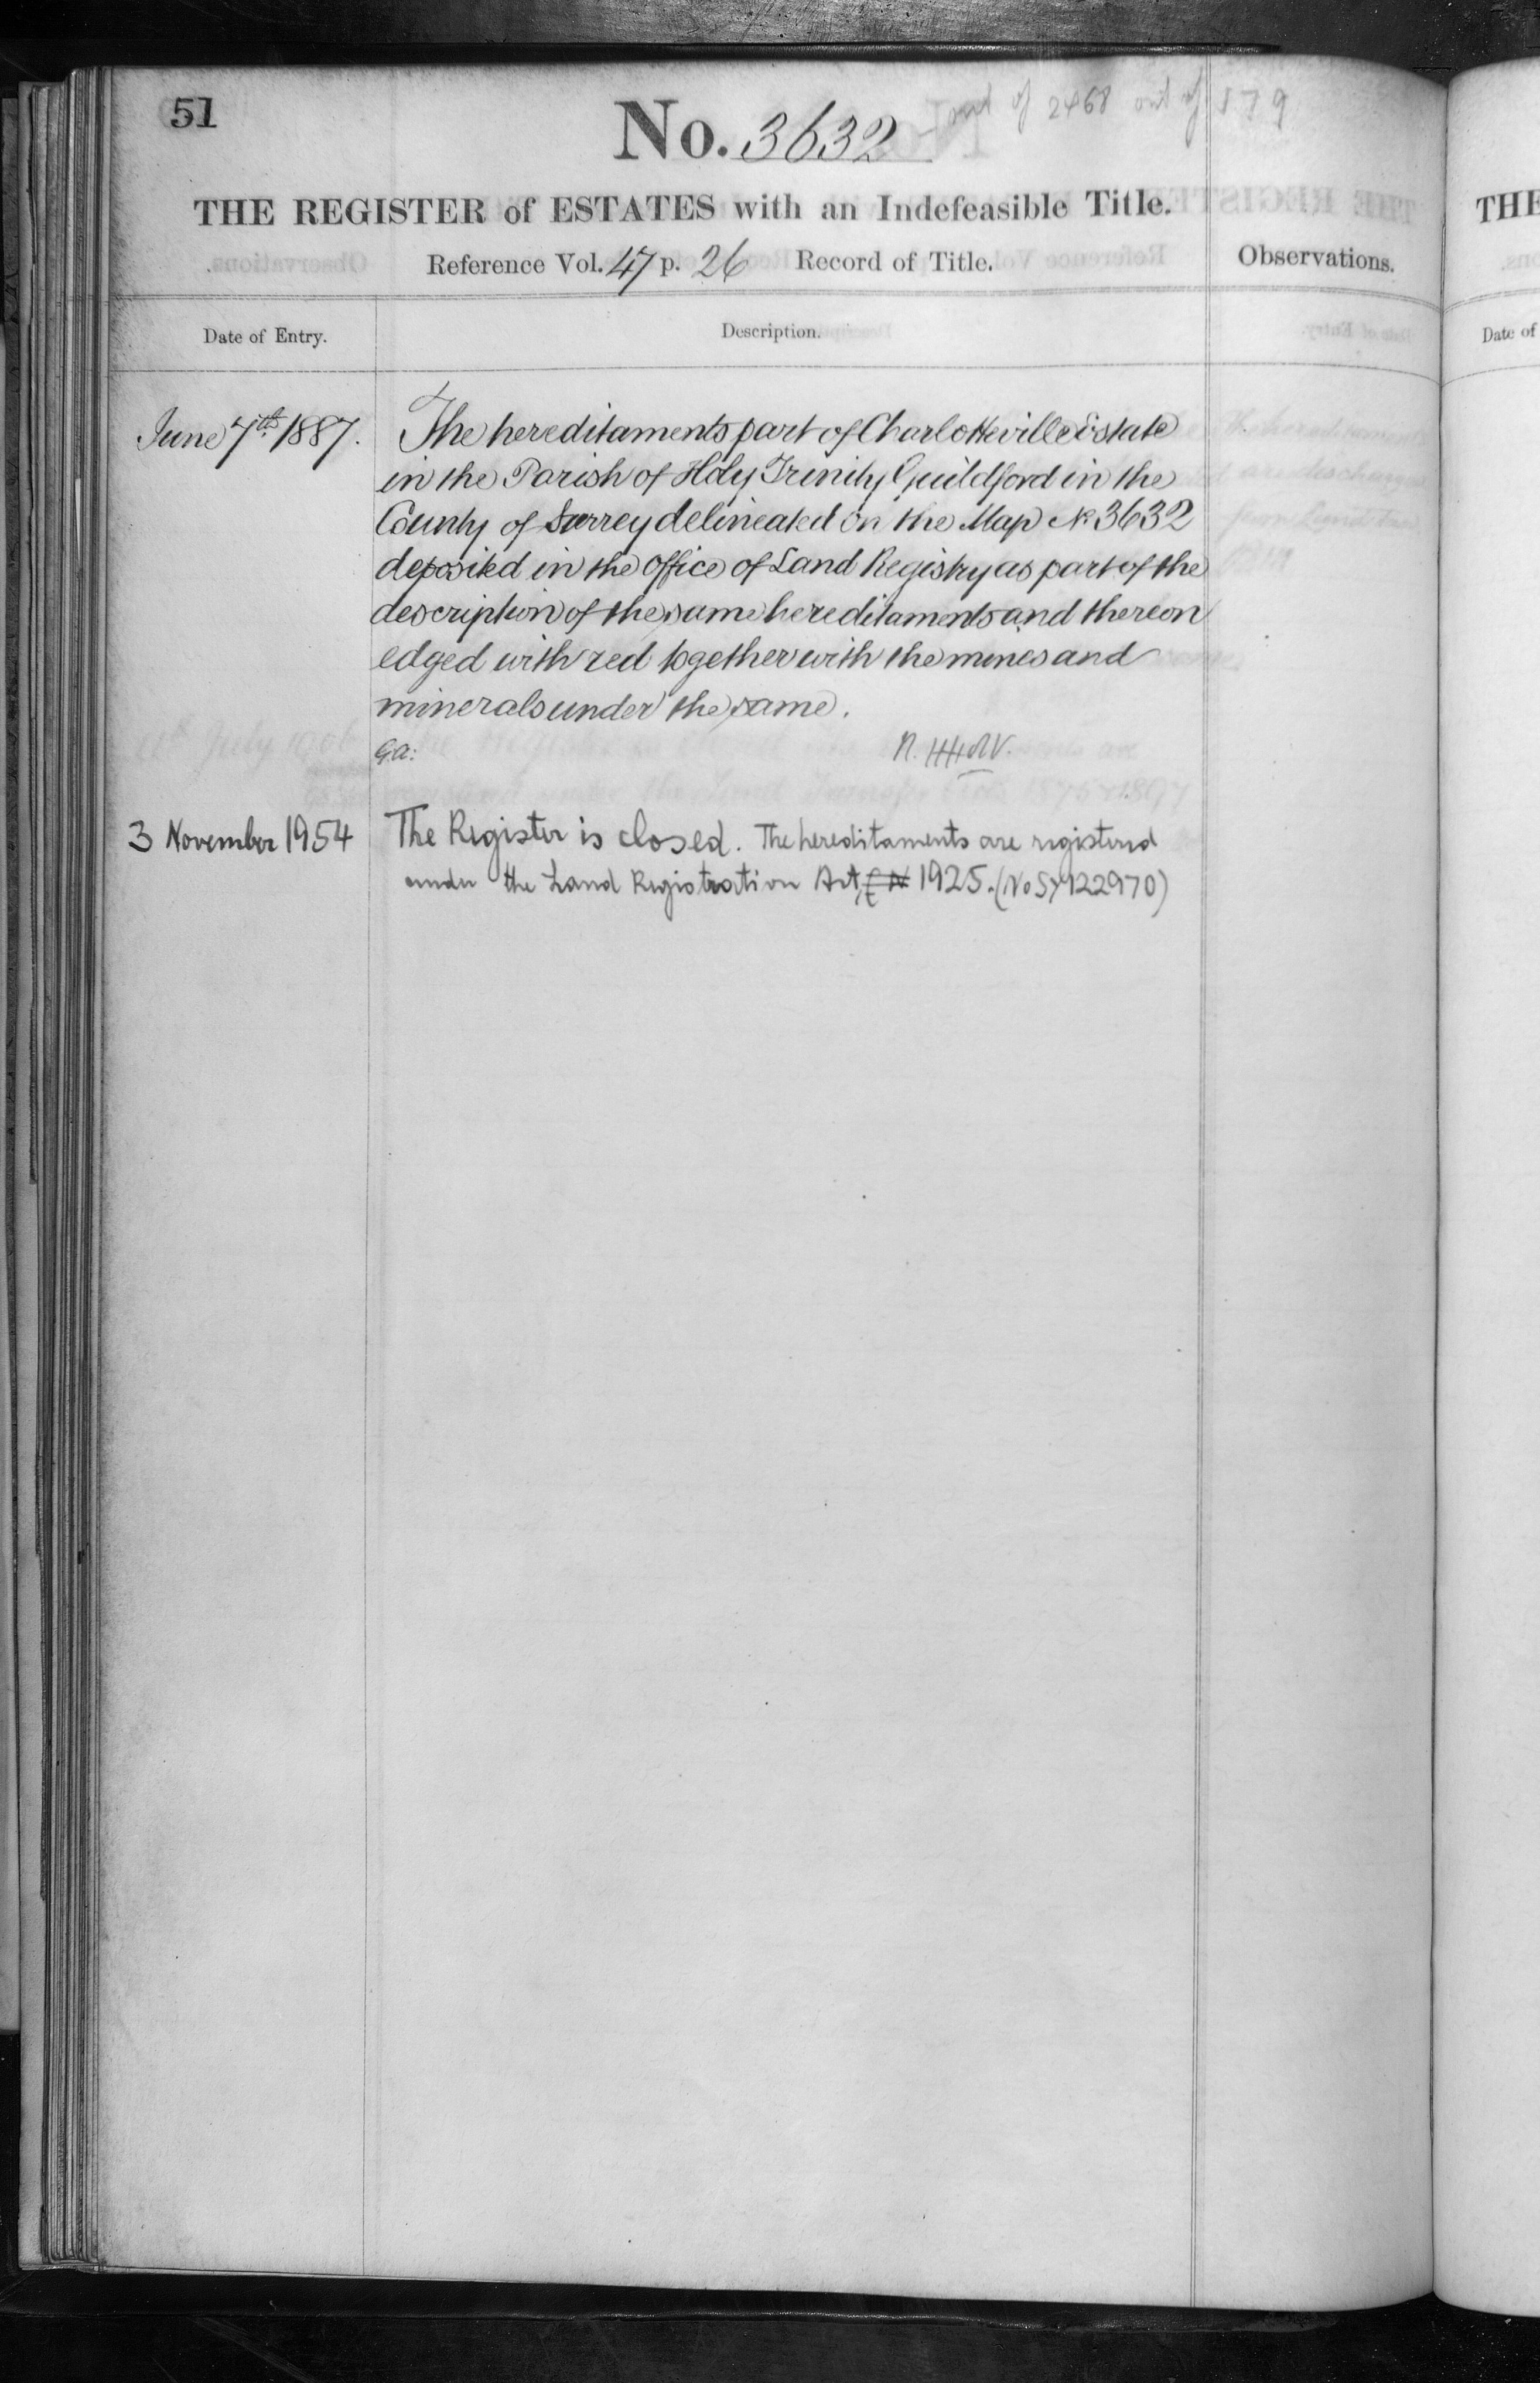 51
No. 3632 part of 2468 out of 179
THE REGISTER of ESTATES with an Indefeasible Title.
Reference Vol. 47 p. 26 Record of Title.
Observations.
Date of Entry.
Description.
June 7th 1887.
The hereditaments part of Charlotteville Estate
in the Parish of Holy Trinity Guildford in the
County of Surrey delineated on the Map No. 3632
deposited in the Office of Land Registry as part of the
description of the same hereditaments and thereon
edged with red together with the mines and
minerals under the same.
G.a:
3 November 1954
The Register is closed. The hereditaments are registered
under the Land Registration Act, 1925. (No SY122970)
THE
Date of